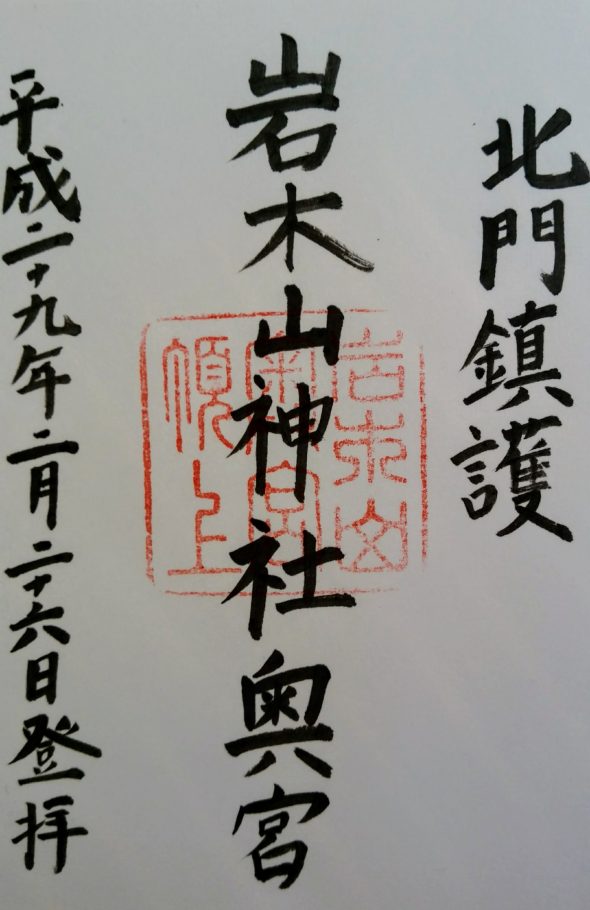 北門鎮護
岩木山神社奥宮
岩木山
奥宮
頂上
平成二十九年二月二十六日登拝